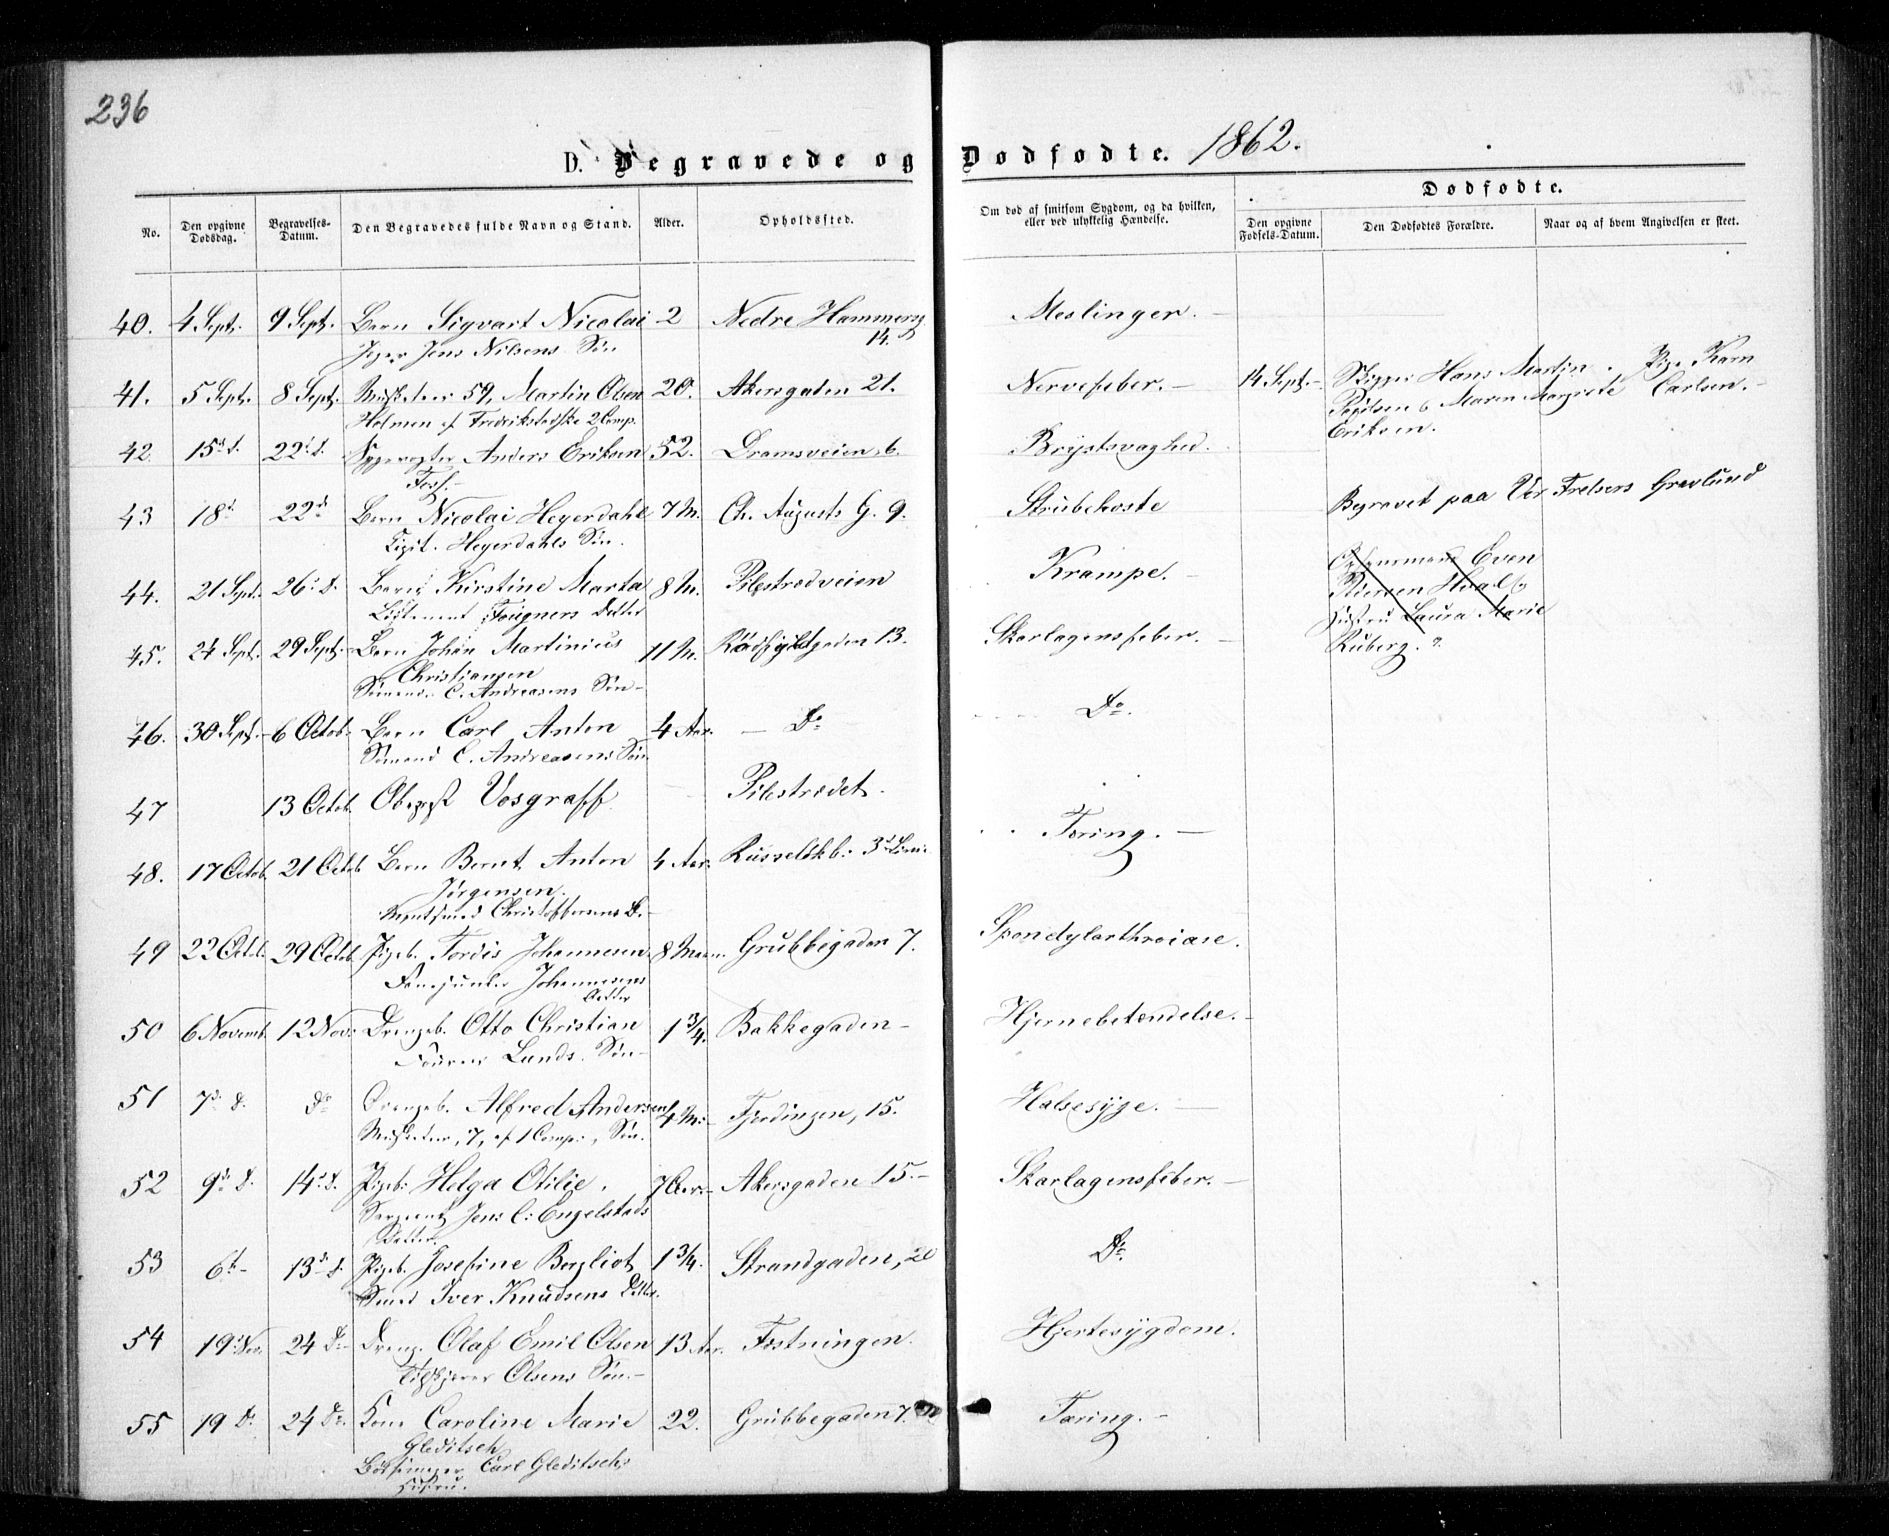 236
D. Begravede og Dodfodte. 1862.
No.
Den opgivne Dodsdag.
Begravelses-Datum.
Den Begravedes fulde Navn og Stand.
Alder.
Opholdssted.
Om dod af smitsom Sygdom, og da hvilken, eller ved ulykkelig Hændelse.
Dodfodte.
Den opgivne Fodsels-Datum.
Den Dodfodtes Forældre.
Naar og af hvem Angivelsen er skeet.
40. 4 Sept. 9 Sept. Barn Sigvart Nicolai 2 Nedre Hammersg. 14. Meslinger.
Jens Nilsens Søn
41. 5 Sept. 8 Sept. Musketeer 59, Martin Olsen 20. Akersgaden 21. Nervefeber. 14 Sept. Hans Martin Pige Karn
Holmen af Fredrikstadske 2 Comp. Maren Margrete Carlsen.
Eriksen.
42. 15 d. 22 d. Sygevogter Anders Eriksen 52. Dramsveien 6. Brystsvaghed.
43 18 d. 22 d. Barn Nicolai Heyerdahl 7 M. Ch. Augusts G. 9. Strubehoste Begravet paa Vor Frelsers Gravlund
Heyerdahls Søn.
44. 21 Sept. 26 d. Barn Kirstine Marta 8 M. Pilestrædveien Krampe. Even
Fougners Datter
Hustru Laura Marie
Ruberg.
45. 24 Sept. 29 Sept. Barn Johan Martinius 11 M. Rødfyldtgaden 13. Skarlagensfeber.
Christiansen
Sømand C. Andreasens Søn
46. 30 Sept. 6 Octob. Barn Carl Anton 4 Aar. Do Do.
Sømand C. Andreasens Søn
47 13 Octob. Vosgraff Pilestrædet.
48. 17 Octob. 21 Octob. Barn Bernt Anton 4 Aar. Russeløkb. 3 Tæring.
Jørgensen.
Christoffersens
49 22 Octob. 29 Octob. Pigeb. Tordis Johannesen 8 Maan. Grubbegaden 7. Spondylarthroiase.
Fanejunker Johannesens
Datter
50 6 Novemb. 12 Nov. Drengeb. Otto Christian 1 3/4. Bakkegaden Hjernebetændelse.
Fourer Lunds Søn
51 7 d. Do Drengeb. Alfred Andersen 4 M. Fjerdingen, 15. Halsesyge.
Musketeer, 7, af 1 Comp., Søn.
52 9 d. 14 d. Pigeb. Helga Otilie. 7 Aar. Akersgaden 15. Skarlagensfeber.
Sergeant Jens C. Engelstads
Datter.
53 6te 13 d. Pigeb. Josefine Bergliot 1 3/4. Strandgaden, 20 Do.
Smed Iver Knudsens Datter.
54 19 Nov. 24 Do Dreng. Olaf Emil Olsen 13 Aar. Fæstningen. Hjertesygdom.
Olsens Søn.
55 19 Do 24 Do. Kone Caroline Marie 22. Grubbegaden 7. Tæring.
Gleditsch
Carl Gleditschs
Hustru.